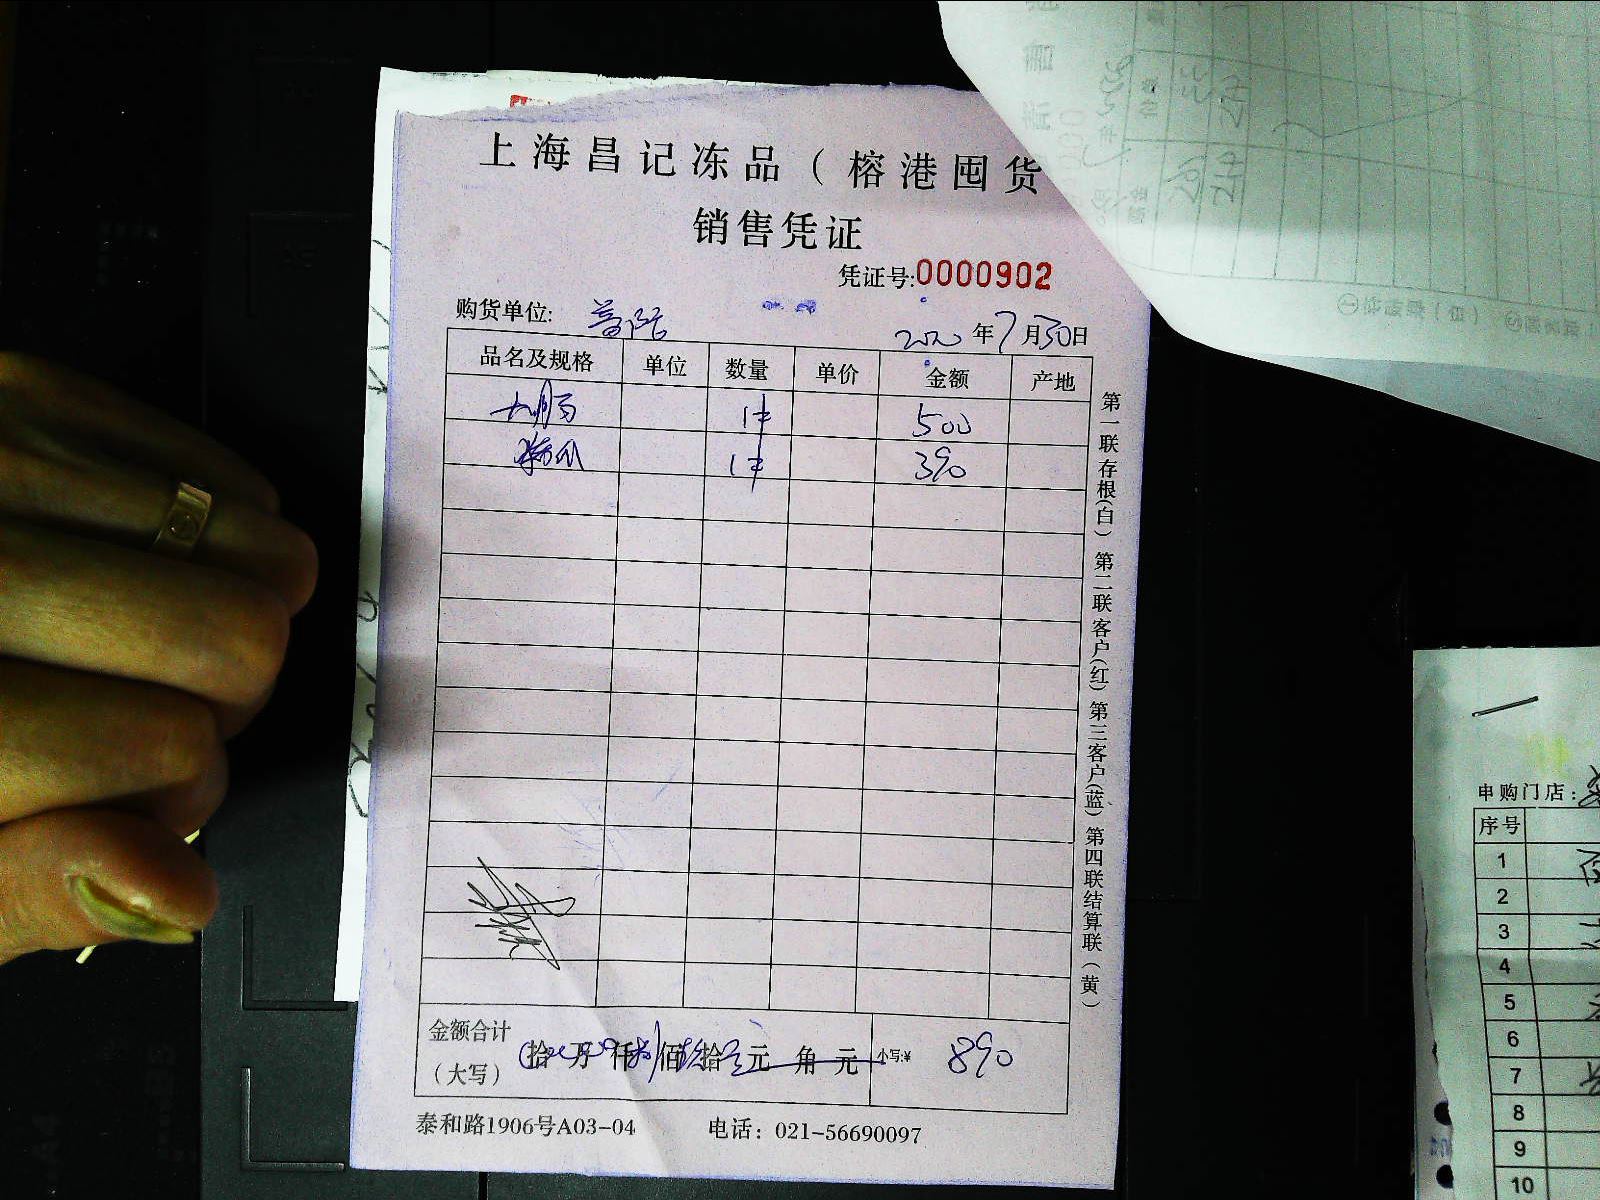 上海昌记冻品（榕港囤货
销售凭证
凭证号:0000902
购货单位: 普陀
2020年7月30日
品名及规格 单位 数量 单价 金额 产地
大肠 1件 500
1件 390
金额合计（大写） 拾 万 仟 捌佰 玖拾 零元 角 元 小写:¥ 890
泰和路1906号A03-04 电话：021-56690097
第一联存根(白) 第二联客户(红) 第三客户(蓝) 第四联结算联（黄）
申购门店:
序号
1
2
3
4
5
6
7
8
9
10